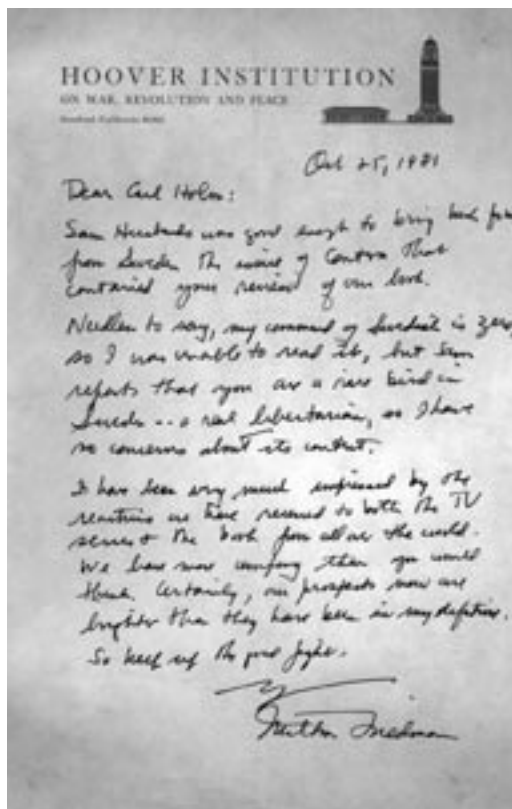 HOOVER INSTITUTION
ON WAR, REVOLUTION AND PEACE
Stanford, California
Oct 25, 1981
Dear Carl Holm:
Sam was good enough to bring back
from Sweden the issue of Contra that
contained your review of our book.
Needless to say, my command of Swedish is zero,
so I was unable to read it, but Sam
reports that you are a rare bird in
Sweden -- a real libertarian, so I have
no concerns about its content.
I have been very much impressed by the
reactions we have received to both the TV
series & the book from all over the world.
We have more company than you would
think. Certainly, our prospects now are
brighter than they have been in my
So keep up the good fight.
Milton Friedman